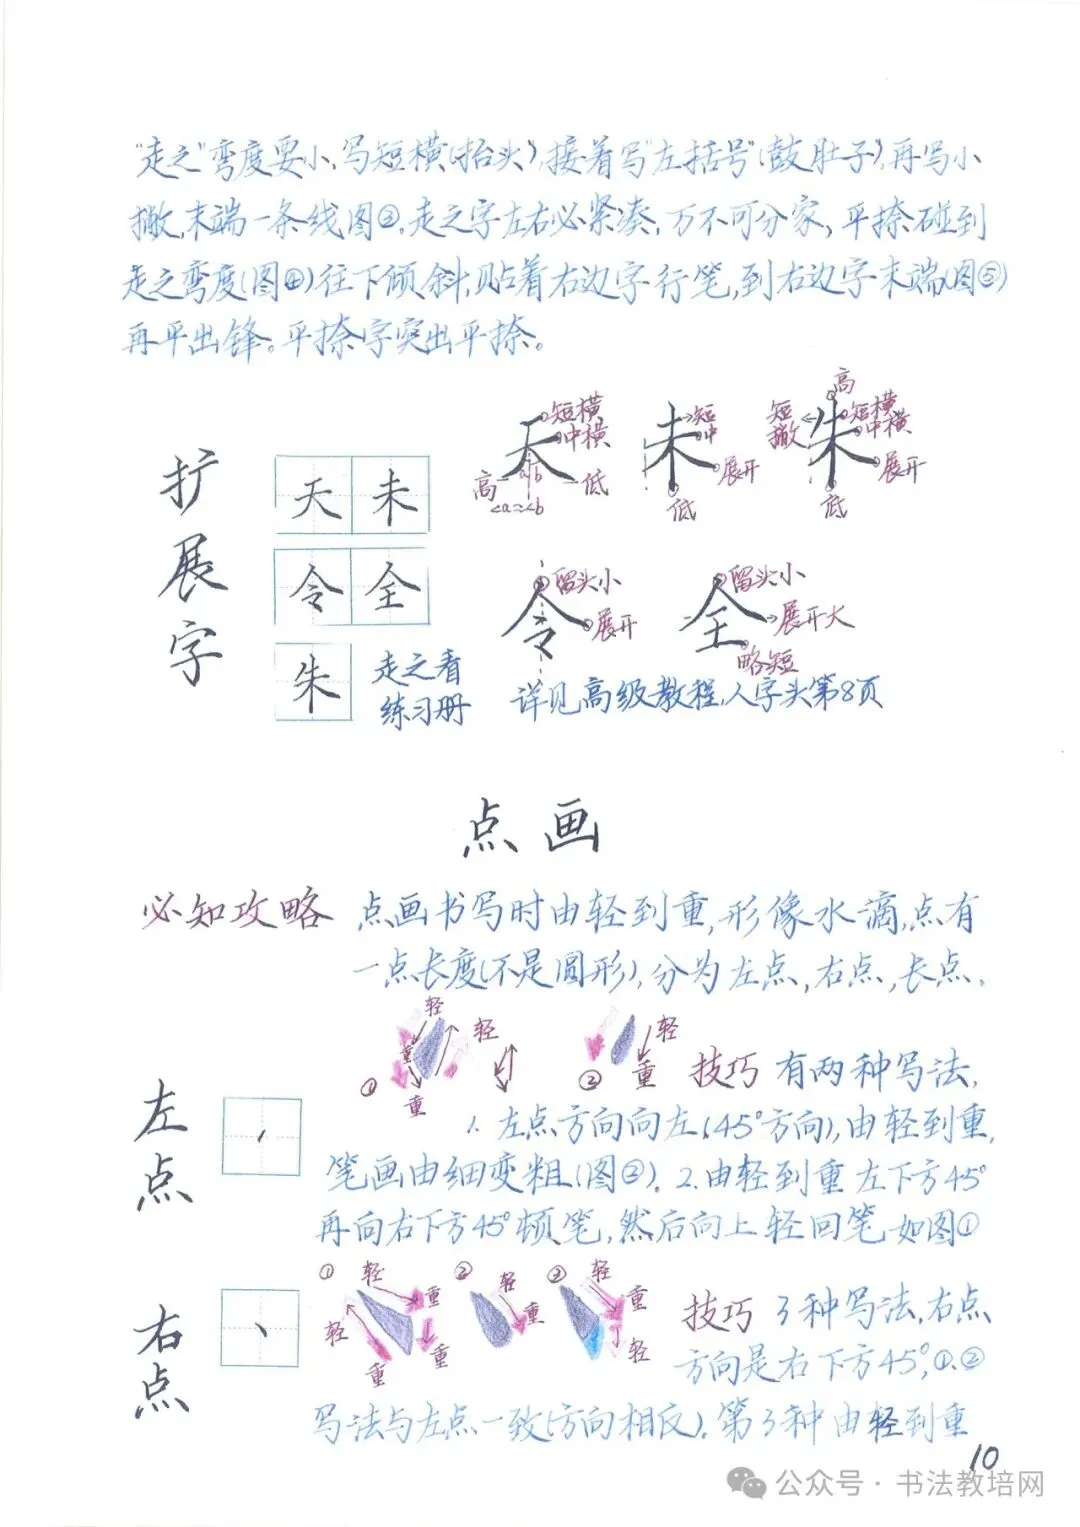 "走之"弯度要小,写短横(抬头),接着写"左括号"(鼓肚子),再写小
撇,末端一条线图③,走之字左右必紧凑,万不可分家,平捺碰到
走之弯度(图④)往下倾斜,贴着右边字行笔,到右边字末端(图⑤)
再平出锋。平捺字突出平捺。
扩展字
天 未
令 全
朱
走之看
练习册
天
短横
中横
高 a b 低
<a≈<b
未
短
中
展开
低
朱
高
短撇
短横
中横
展开
低
令
留头小
展开
全
留头小
展开大
略短
详见高级教程,人字头第8页
点画
必知攻略 点画书写时由轻到重,形像水滴,点有
一点长度(不是圆形),分为左点,右点,长点。
左点
① 轻 重 重 轻
② 轻 重
技巧 有两种写法,
1. 左点方向向左(45°方向),由轻到重,
笔画由细变粗(图②)。2.由轻到重左下方45°
再向右下方45°顿笔,然后向上轻回笔如图①
右点
① 轻 重 重 重 轻
② 轻 重
③ 轻 重 轻
技巧 3种写法,右点
方向是右下方45°,①、②
写法与左点一致(方向相反)。第3种由轻到重
10
公众号·书法教培网